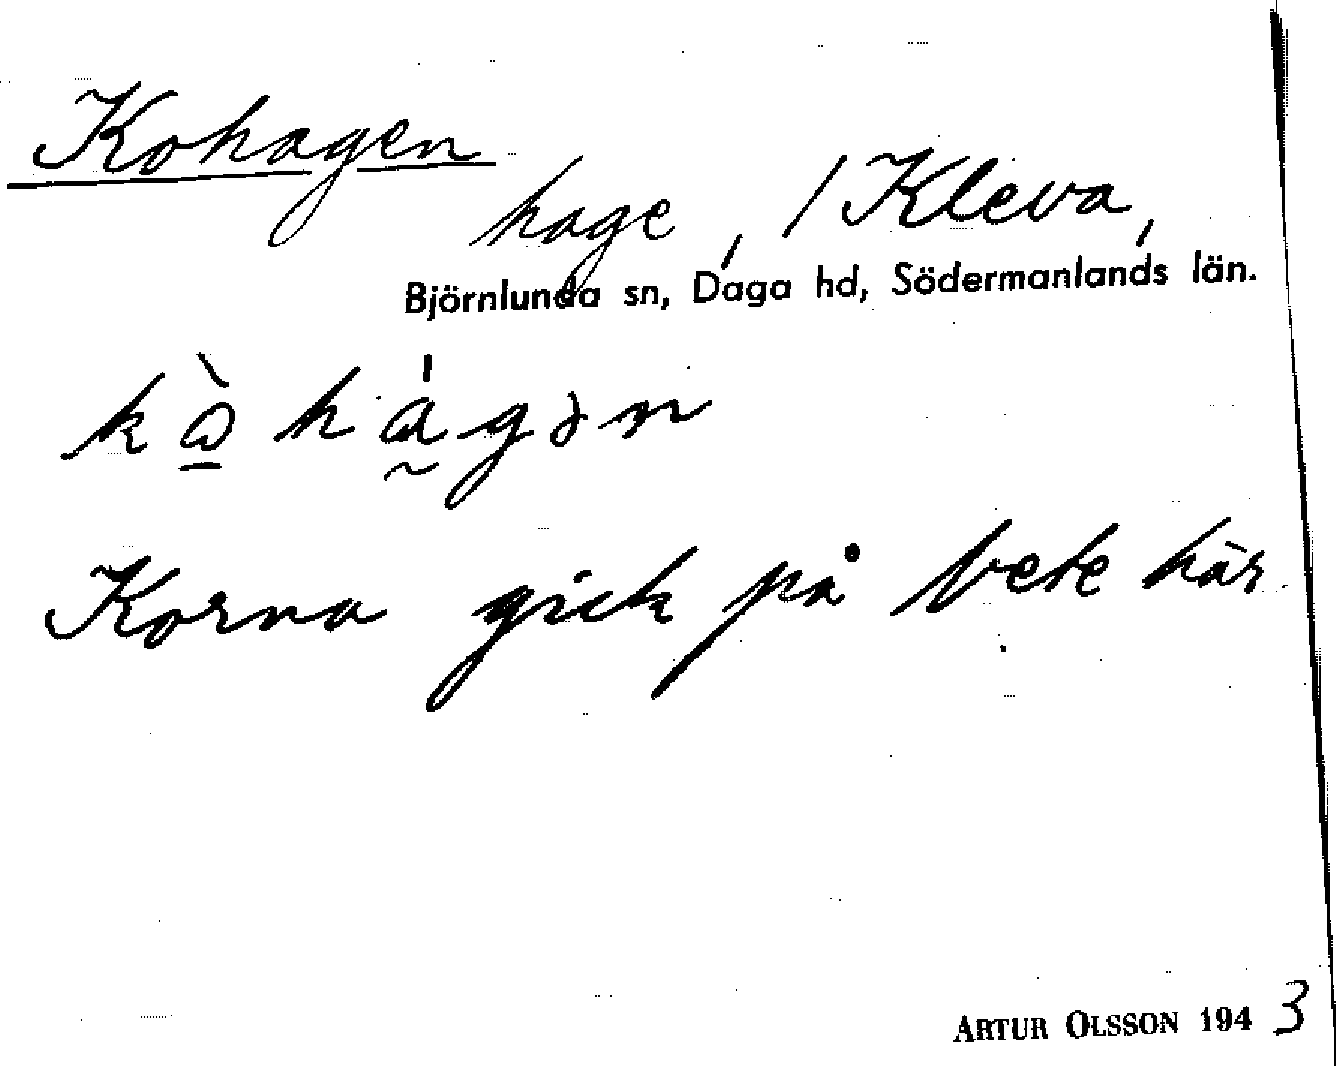 Kohagen
hage, 1 Kleva,
Björnlunda sn, Daga hd, Södermanlands län.
kὼ̲hɑ̰́gən
Korna gick på bete här.
ARTUR OLSSON 1943